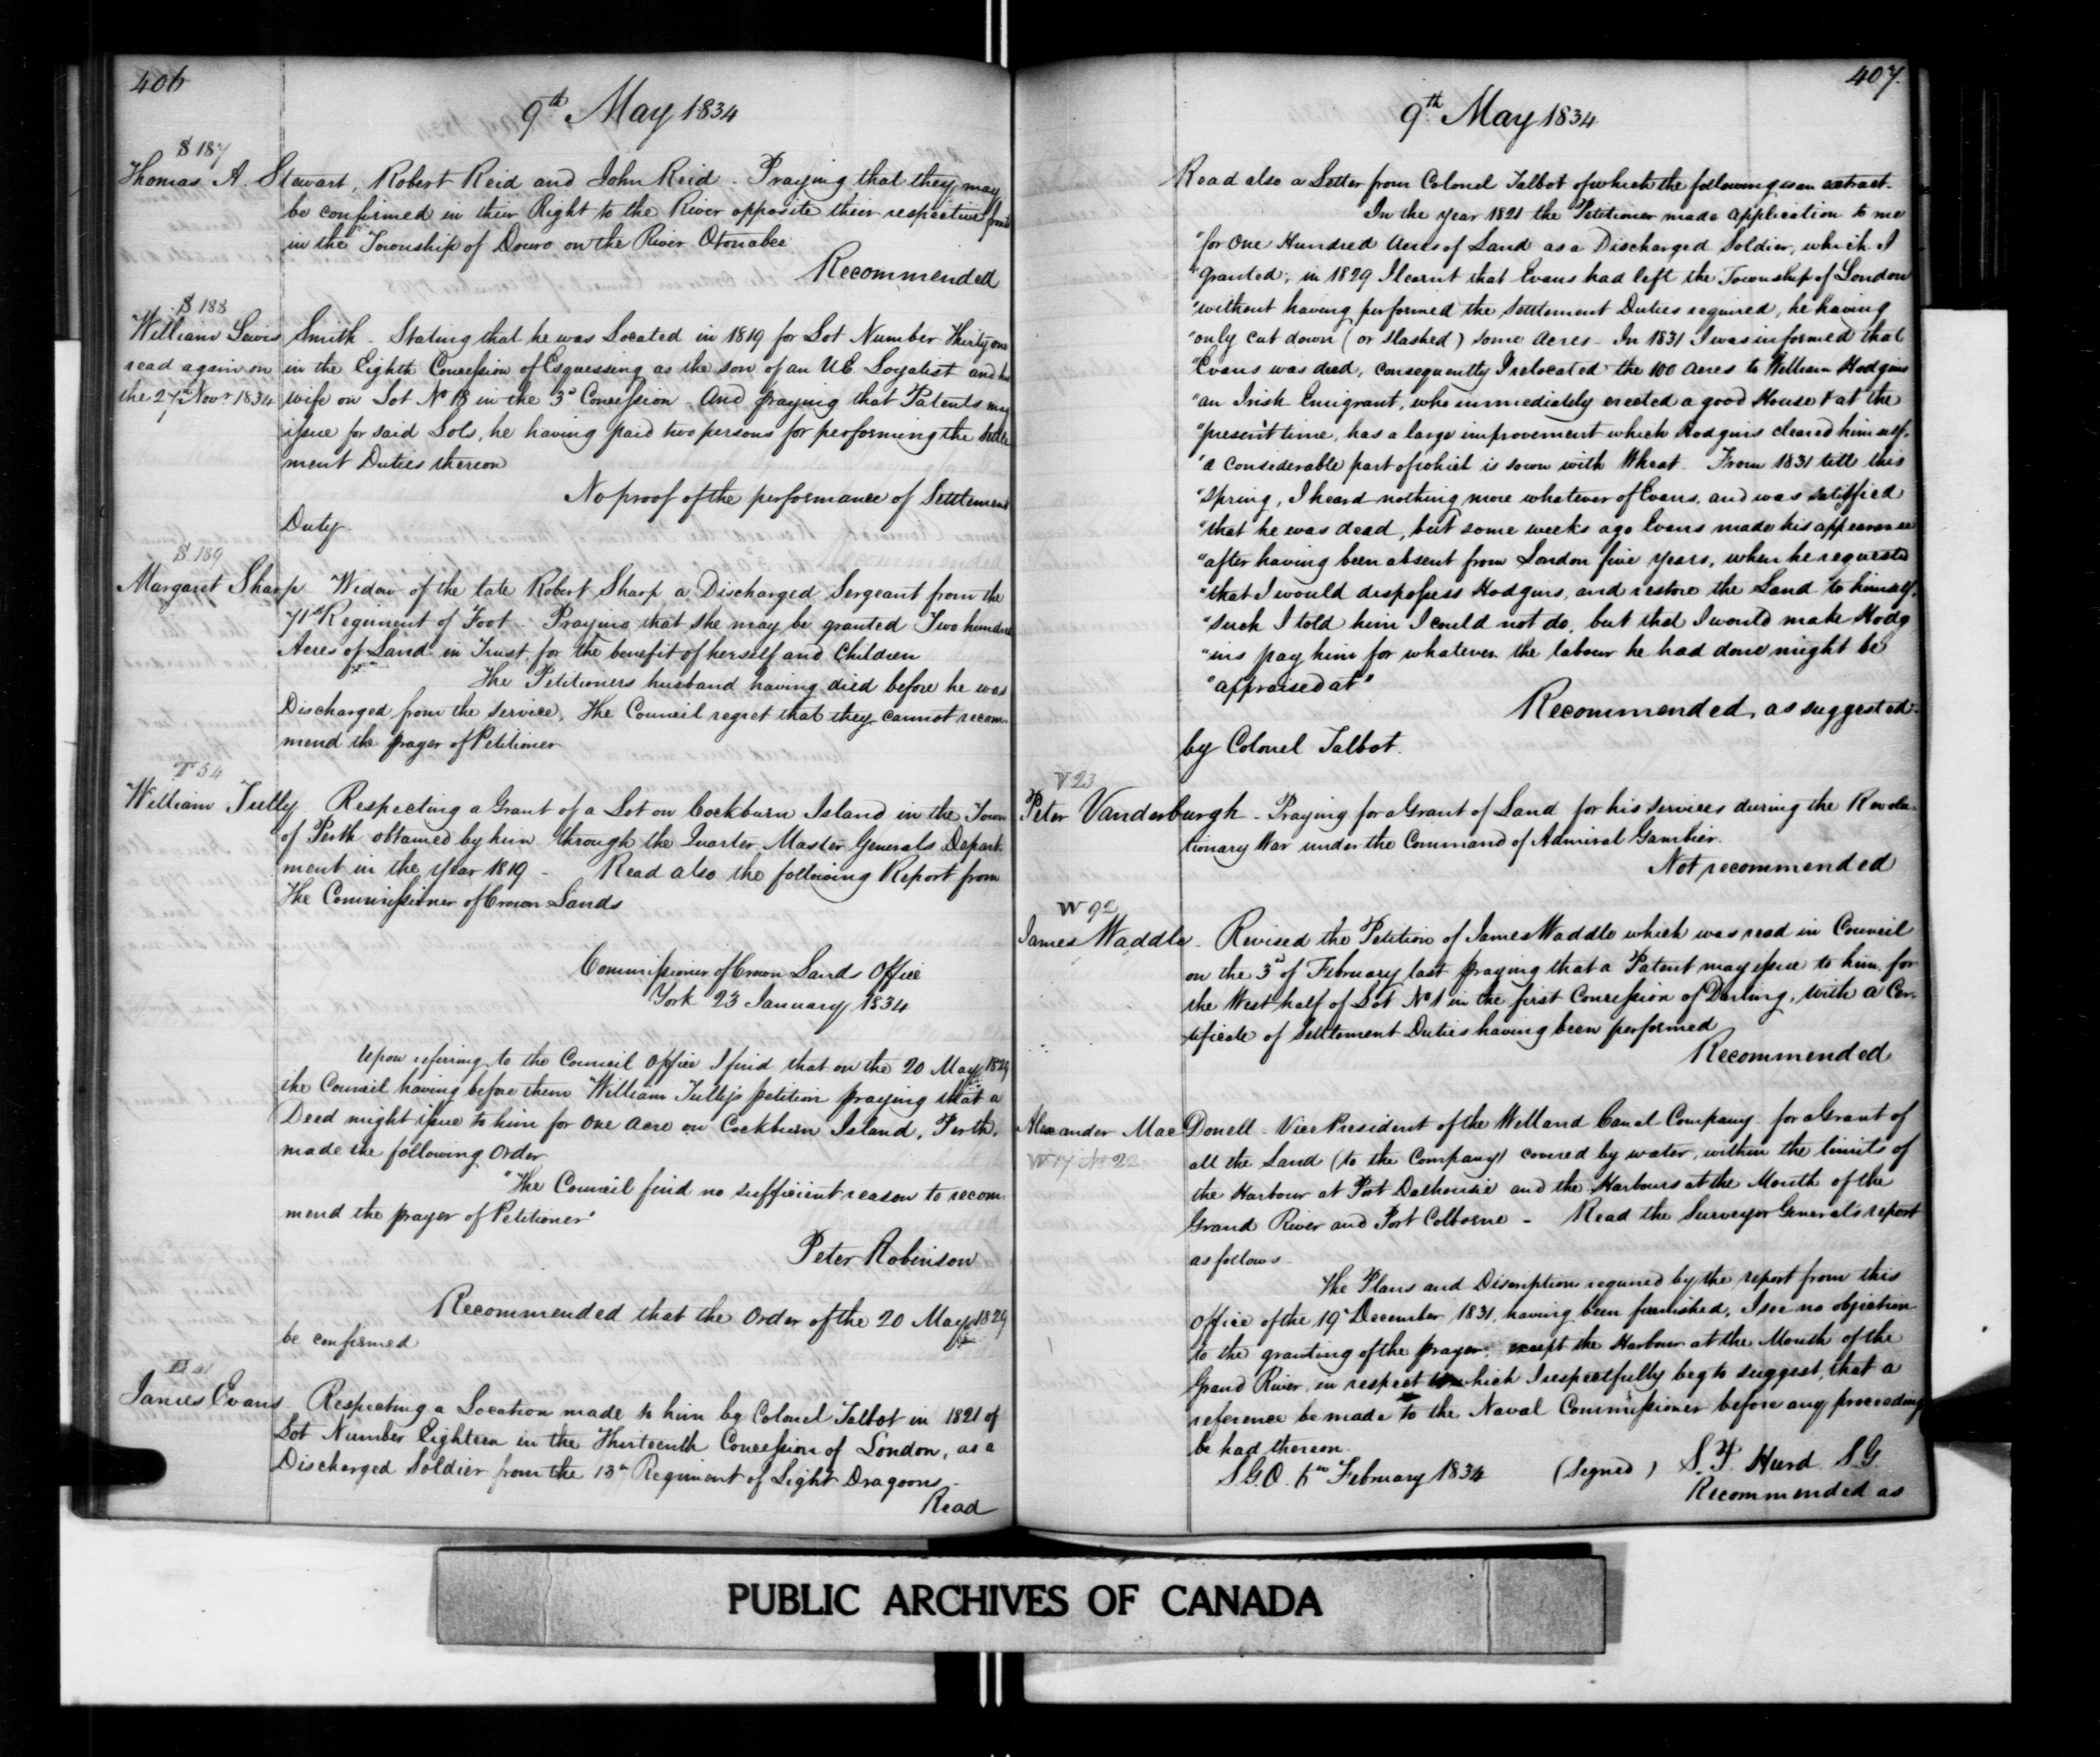 406
9th May 1834
S 187
Thomas A. Stewart, Robert Reid and John Reid - Praying that they may
be confirmed in their Right to the River opposite their respective fronts
in the Township of Douro on the River Otonabee
Recommended
S 188
William Lewis Smith - Stating that he was Located in 1819 for Lot Number Thirty one
read again on
the 27th Novr 1834
in the Eighth Concession of Esquessing as the son of an UE Loyalist and his
wife on Lot No 18 in the 3d Concession - And praying that Patents may
issue for said Lots, he having paid two persons for performing the Settle
ment Duties thereon
No proof of the performance of Settlement
Duty
S 189
Margaret Sharp Widow of the late Robert Sharp a Discharged Sergeant from the
71st Regiment of Foot - Praying that she may be granted Two hundred
Acres of Land in Trust for the benefit of herself and Children
The Petitioners husband having died before he was
Discharged from the service, The Council regret that they cannot recom-
mend the prayer of Petitioner
T 54
William Tully Respecting a Grant of a Lot on Cockburn Island in the Town
of Perth obtained by him through the Quarter Master Generals Depart-
ment in the year 1819 - Read also the following Report from
The Commissioner of Crown Lands
Commissioner of Crown Lands Office
York 23 January 1834
Upon referring to the Council Office I find that on the 20 May 1829
the Council having before them William Tully's petition praying that a
Deed might issue to him for one acre on Cockburn Island, Perth,
made the following Order
"The Council find no sufficient reason to recom-
mend the prayer of Petitioner"
Peter Robinson
Recommended that the Order of the 20 May 1829
be confirmed
James Evans Respecting a Location made to him by Colonel Talbot in 1821 of
Lot Number Eighteen in the Thirteenth Concession of London, as a
Discharged Soldier from the 13th Regiment of Light Dragoons -
Read
407.
9th May 1834
Read also a Letter from Colonel Talbot of which the following is an extract.
In the year 1821 the Petitioner made application to me
"for One Hundred Acres of Land as a Discharged Soldier, which I
"granted; in 1829 I learnt that Evans had left the Township of London
"without having performed the Settlement Duties required, he having
"only cut down (or slashed) some Acres - In 1831 I was informed that
"Evans was dead, consequently I relocated the 100 acres to William Hodgins
"an Irish Emigrant, who immediately erected a good House & at the
"present time, has a large improvement which Hodgins cleared himself,
"a considerable part of which is sown with Wheat. From 1831 till this
"Spring, I heard nothing more whatever of Evans, and was satisfied
"that he was dead, but some weeks ago Evans made his appearance
"after having been absent from London five years, when he requested
"that I would dispossess Hodgins, and restore the Land to himself,
"such I told him I could not do, but that I would make Hodg
"ins pay him for whatever the labour he had done might be
"appraised at"
Recommended, as suggested
by Colonel Talbot.
V 23
Peter Vanderburgh - Praying for a Grant of Land for his services during the Revolu-
tionary War under the Command of Admiral Gambier.
Not recommended
W 92
James Waddle - Revised the Petition of James Waddle which was read in Council
on the 3d of February last praying that a Patent may issue to him for
the West half of Lot No 1 in the first Concession of Darling, with a Cer-
tificate of Settlement Duties having been performed
Recommended
Alexander MacDonell - Vice President of the Welland Canal Company for a Grant of
W 17 No 22
all the Land (to the Company) covered by water, within the limits of
the Harbour at Port Dalhousie and the Harbours at the Mouth of the
Grand River and Port Colborne - Read the Surveyor General's report
as follows
The Plans and Discription required by the report from this
Office of the 19th December 1831, having been furnished, I see no objection
to the granting of the prayer, except the Harbour at the Mouth of the
Grand River, in respect to which I respectfully beg to suggest, that a
reference be made to the Naval Commissioner before any proceeding
be had thereon.
S.G.O. 6th February 1834 (Signed) S. P. Hurd S.G.
Recommended as
PUBLIC ARCHIVES OF CANADA